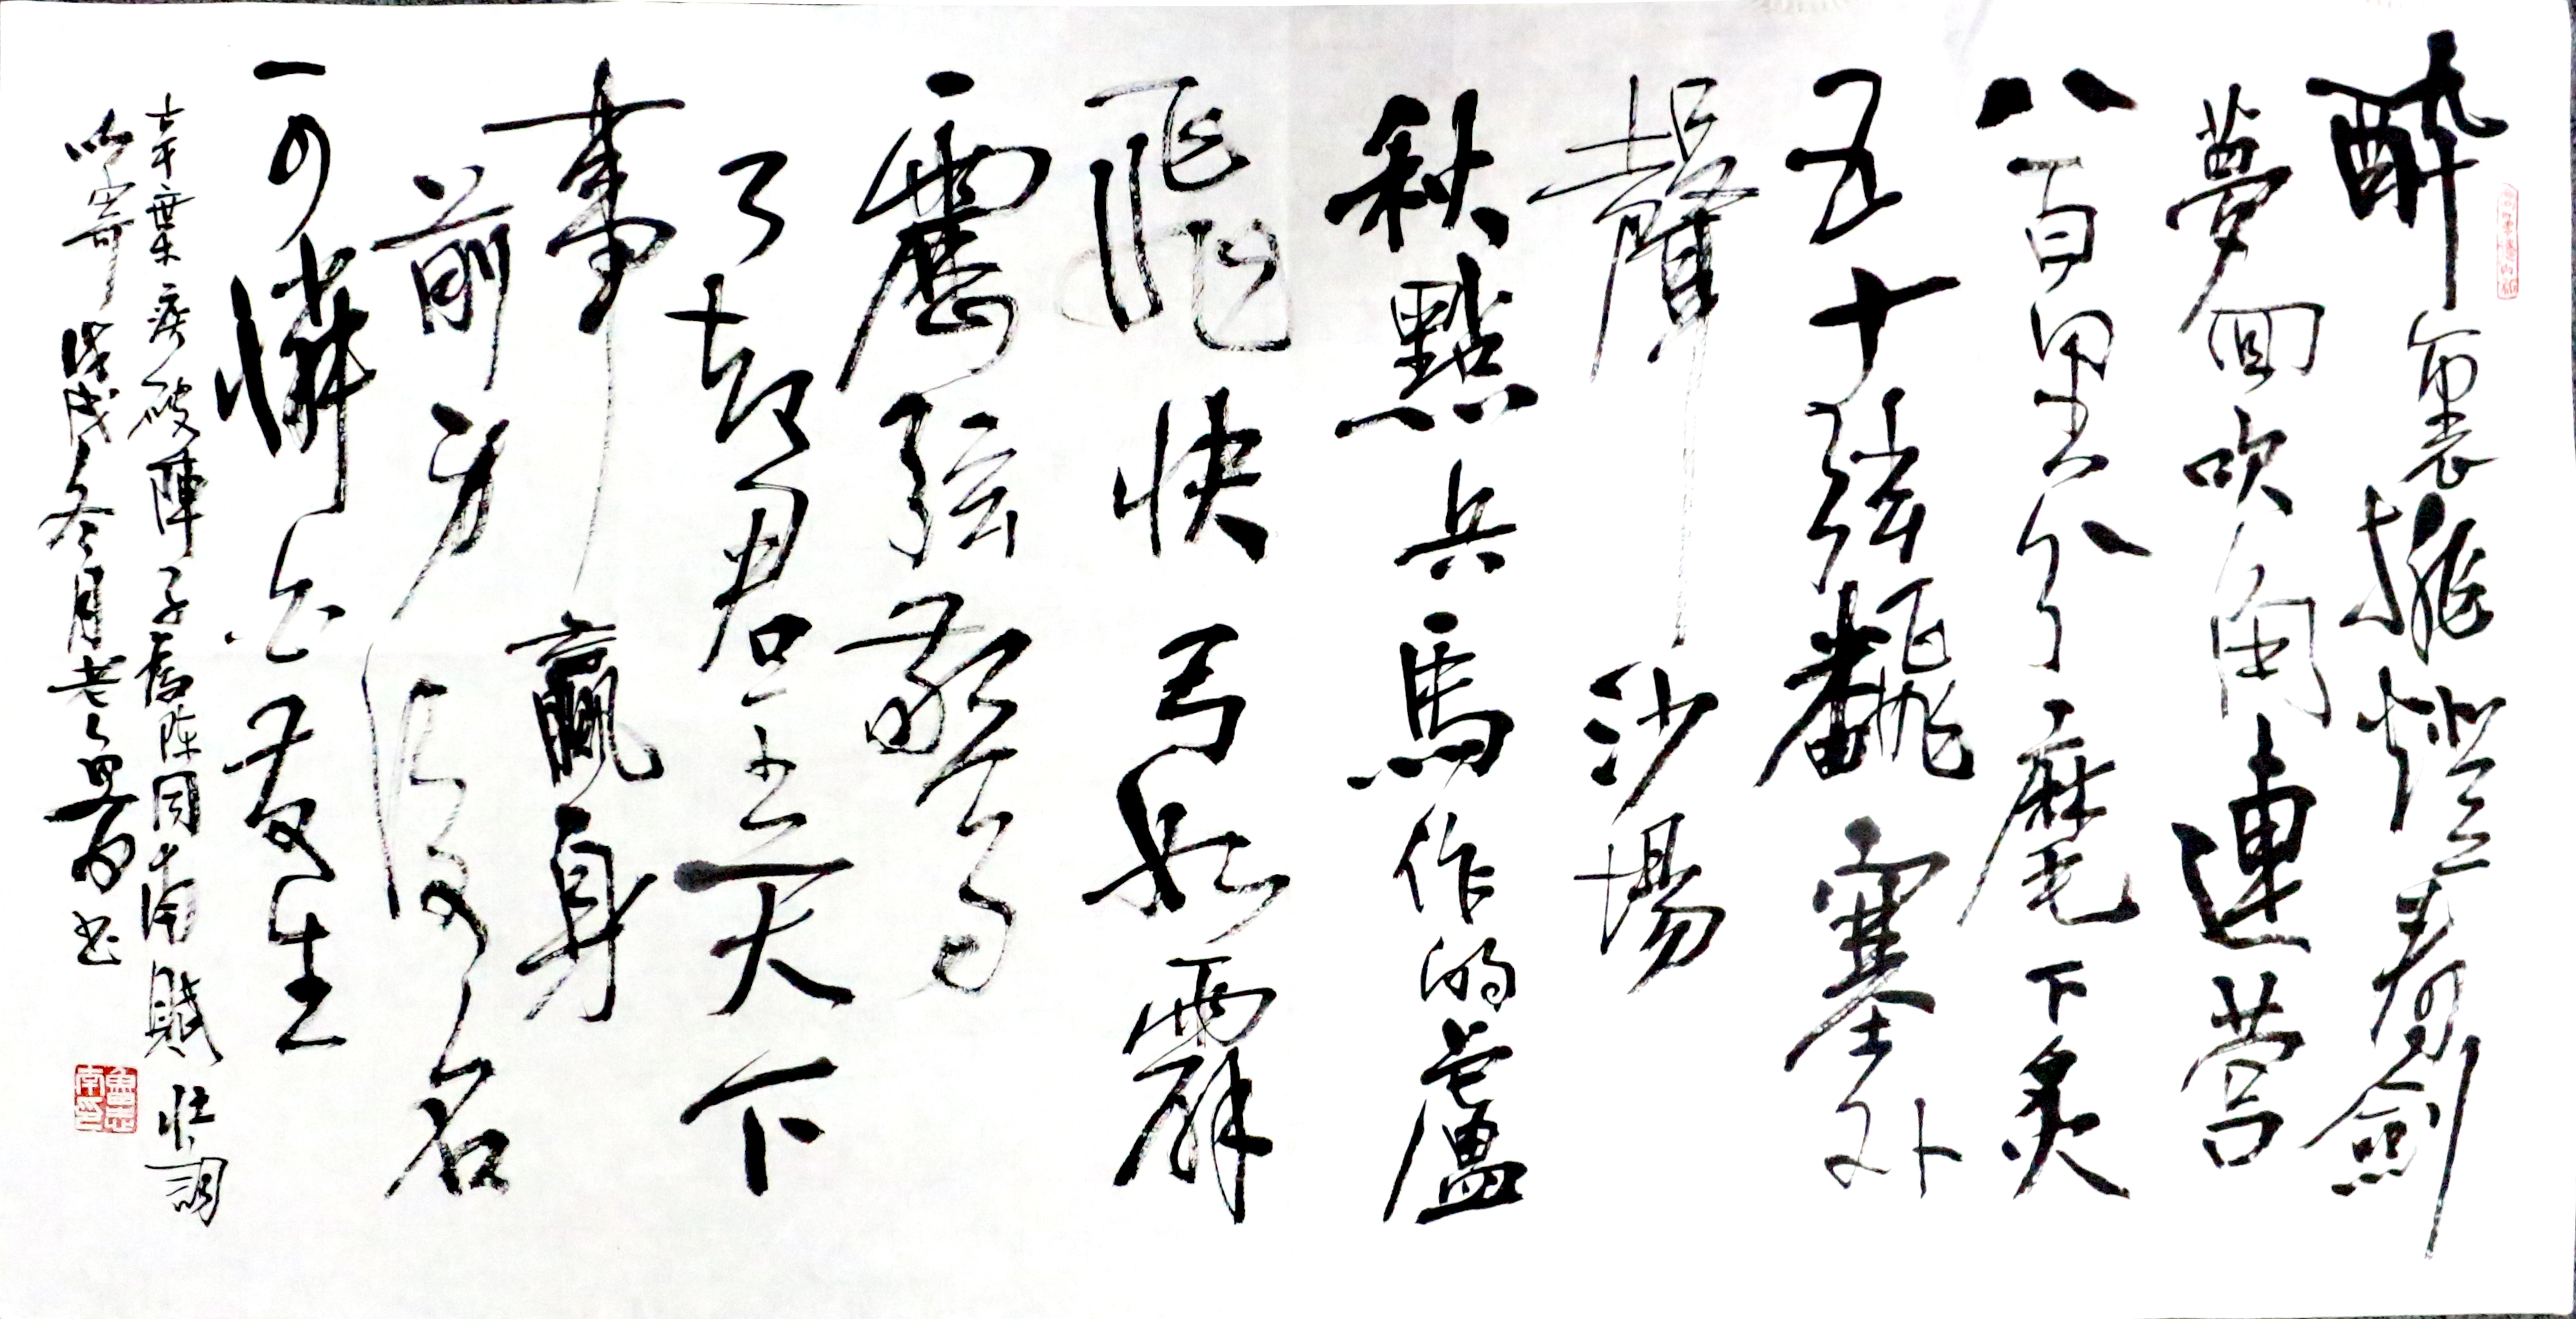 醉裏挑燈看劍
夢回吹角連营
八百里分麾下炙
五十弦翻塞外
聲沙場
秋點兵馬作的盧
飛快弓如霹
靂弦驚了
了却君王天下
事贏身
前身後名
可憐白發生
辛棄疾破陣子爲陈同甫賦壯詞
以寄 戊戌冬月老魯書